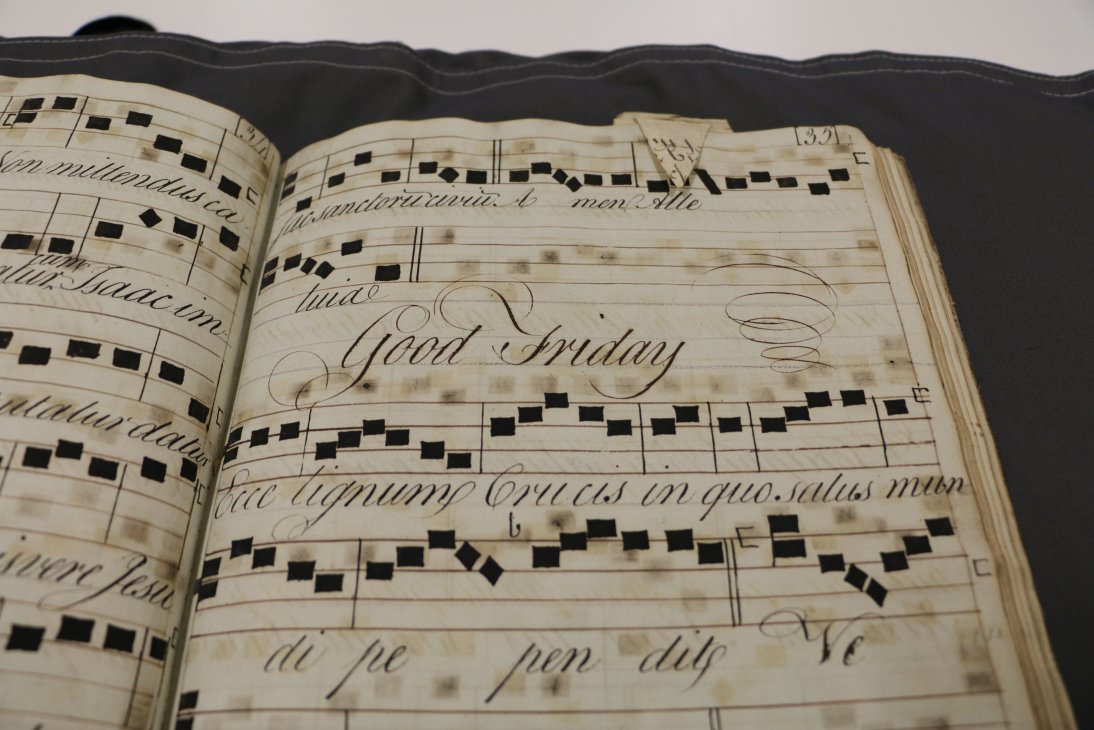 34
Non mittendus ca
atur, cum Isaac im
tatur datur
is vere Jesu
35
fac sanctorū civiū. A men Alle
luia
Good Friday
Ecce lignum Crucis in quo salus mun
di pe pen dit Ve